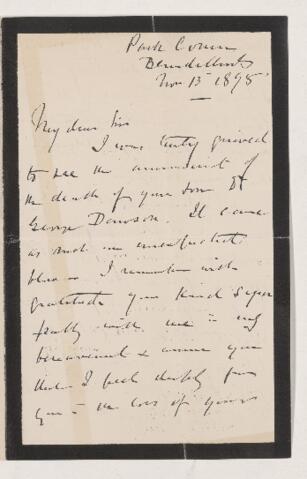 Park Corner
Nov. 13 1898
My dear Sir
I was truly grieved
to see the announcement of
the death of your son St
George Dawson. It came
as such an unexpected
blow — I remember with
gratitude your kind sym
pathy with me in my
bereavement & assure you
that I feel deeply for
you in the loss of yours